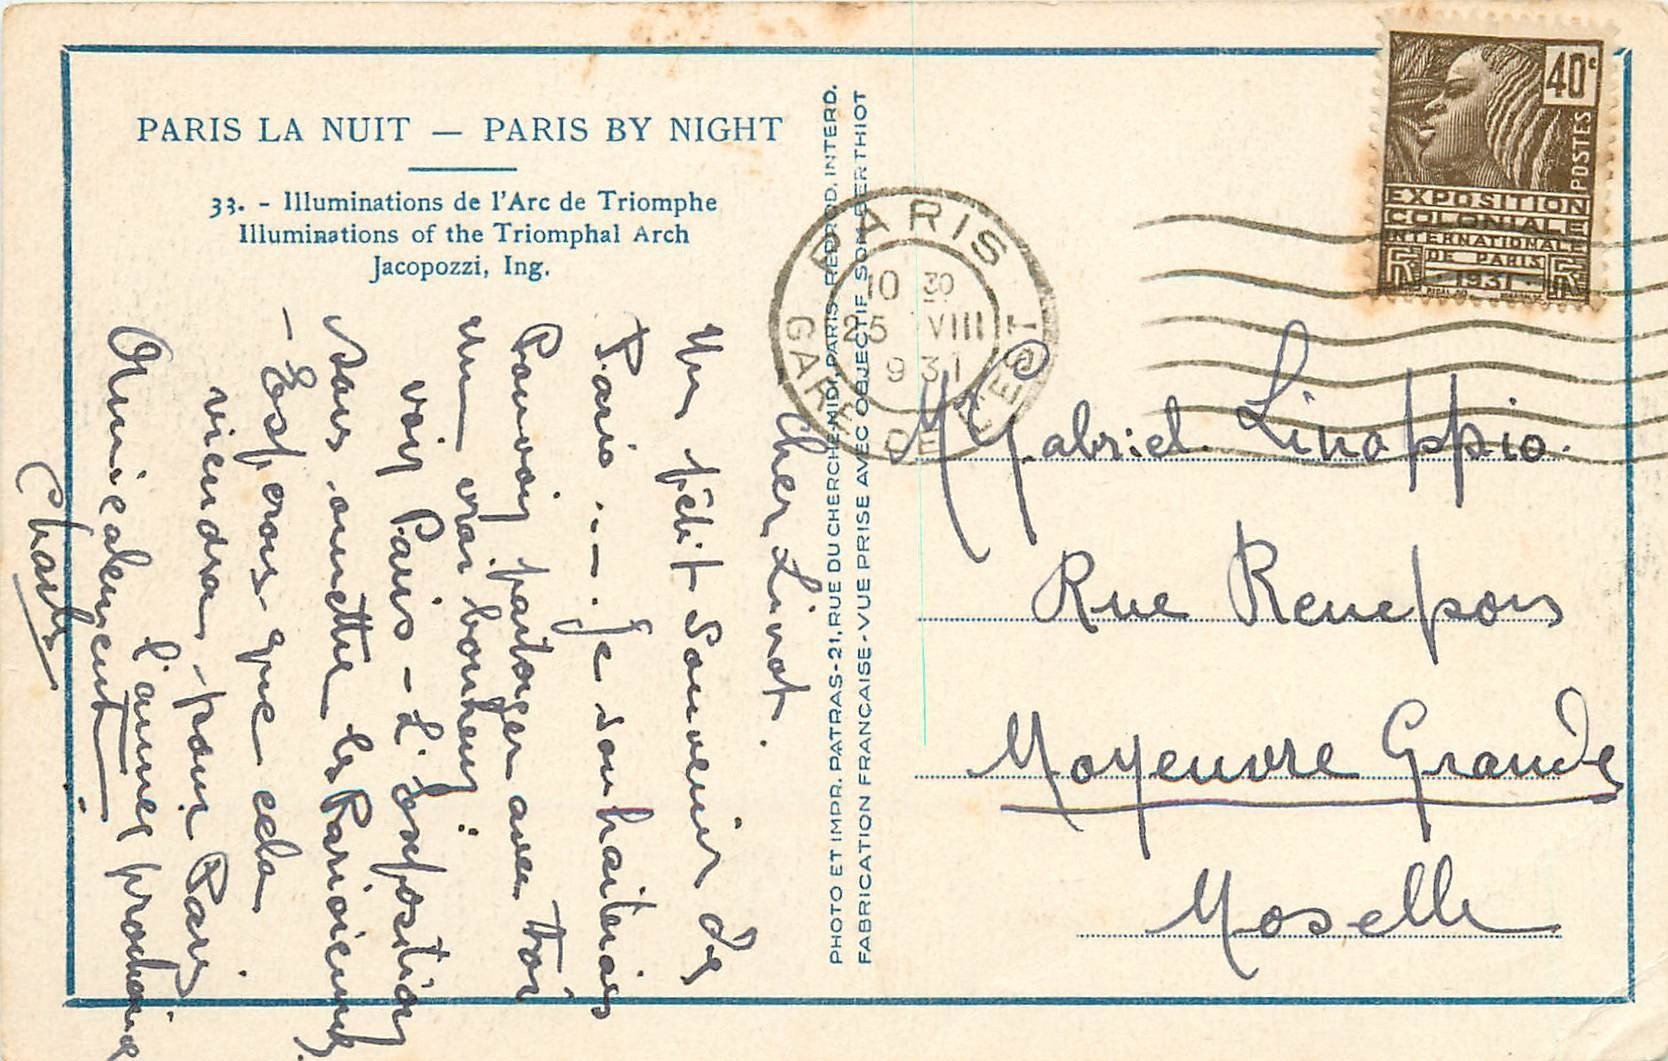 PARIS LA NUIT — PARIS BY NIGHT
33. - Illuminations de l'Arc de Triomphe
Illuminations of the Triomphal Arch
Jacopozzi, Ing.
Cher Linot.
Un petit Souvenir de
Paris . . — . Je souhaiterais
Pouvoir partager avec toi
un vrai bonheur :
voir Paris — L'exposition
sans omettre les Parisiennes.
— Espérons que cela
viendra pour Paris
l'année prochaine
Amicalement
Charles
PHOTO ET IMPR. PATRAS-21, RUE DU CHERCHE MIDI, PARIS-REPROD. INTERD.
FABRICATION FRANÇAISE-VUE PRISE AVEC OBJECTIF SOM BERTHIOT
PARIS
10 30
25 VIII
931
GARE DE L'EST
40c
POSTES
EXPOSITION
COLONIALE
INTERNATIONALE
DE PARIS
RF 1931 RF
M Gabriel Linoppio.
Rue Renepons
Moyeuvre Grande
Moselle